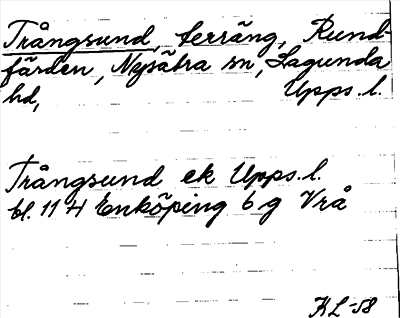 Trångsund, terräng, Rund-
färden, Nysätra sn, Lagunda
hd, Upps. l.
Trångsund ek Upps. l.
bl. 11 H Enköping 6 g Vrå
KL-58